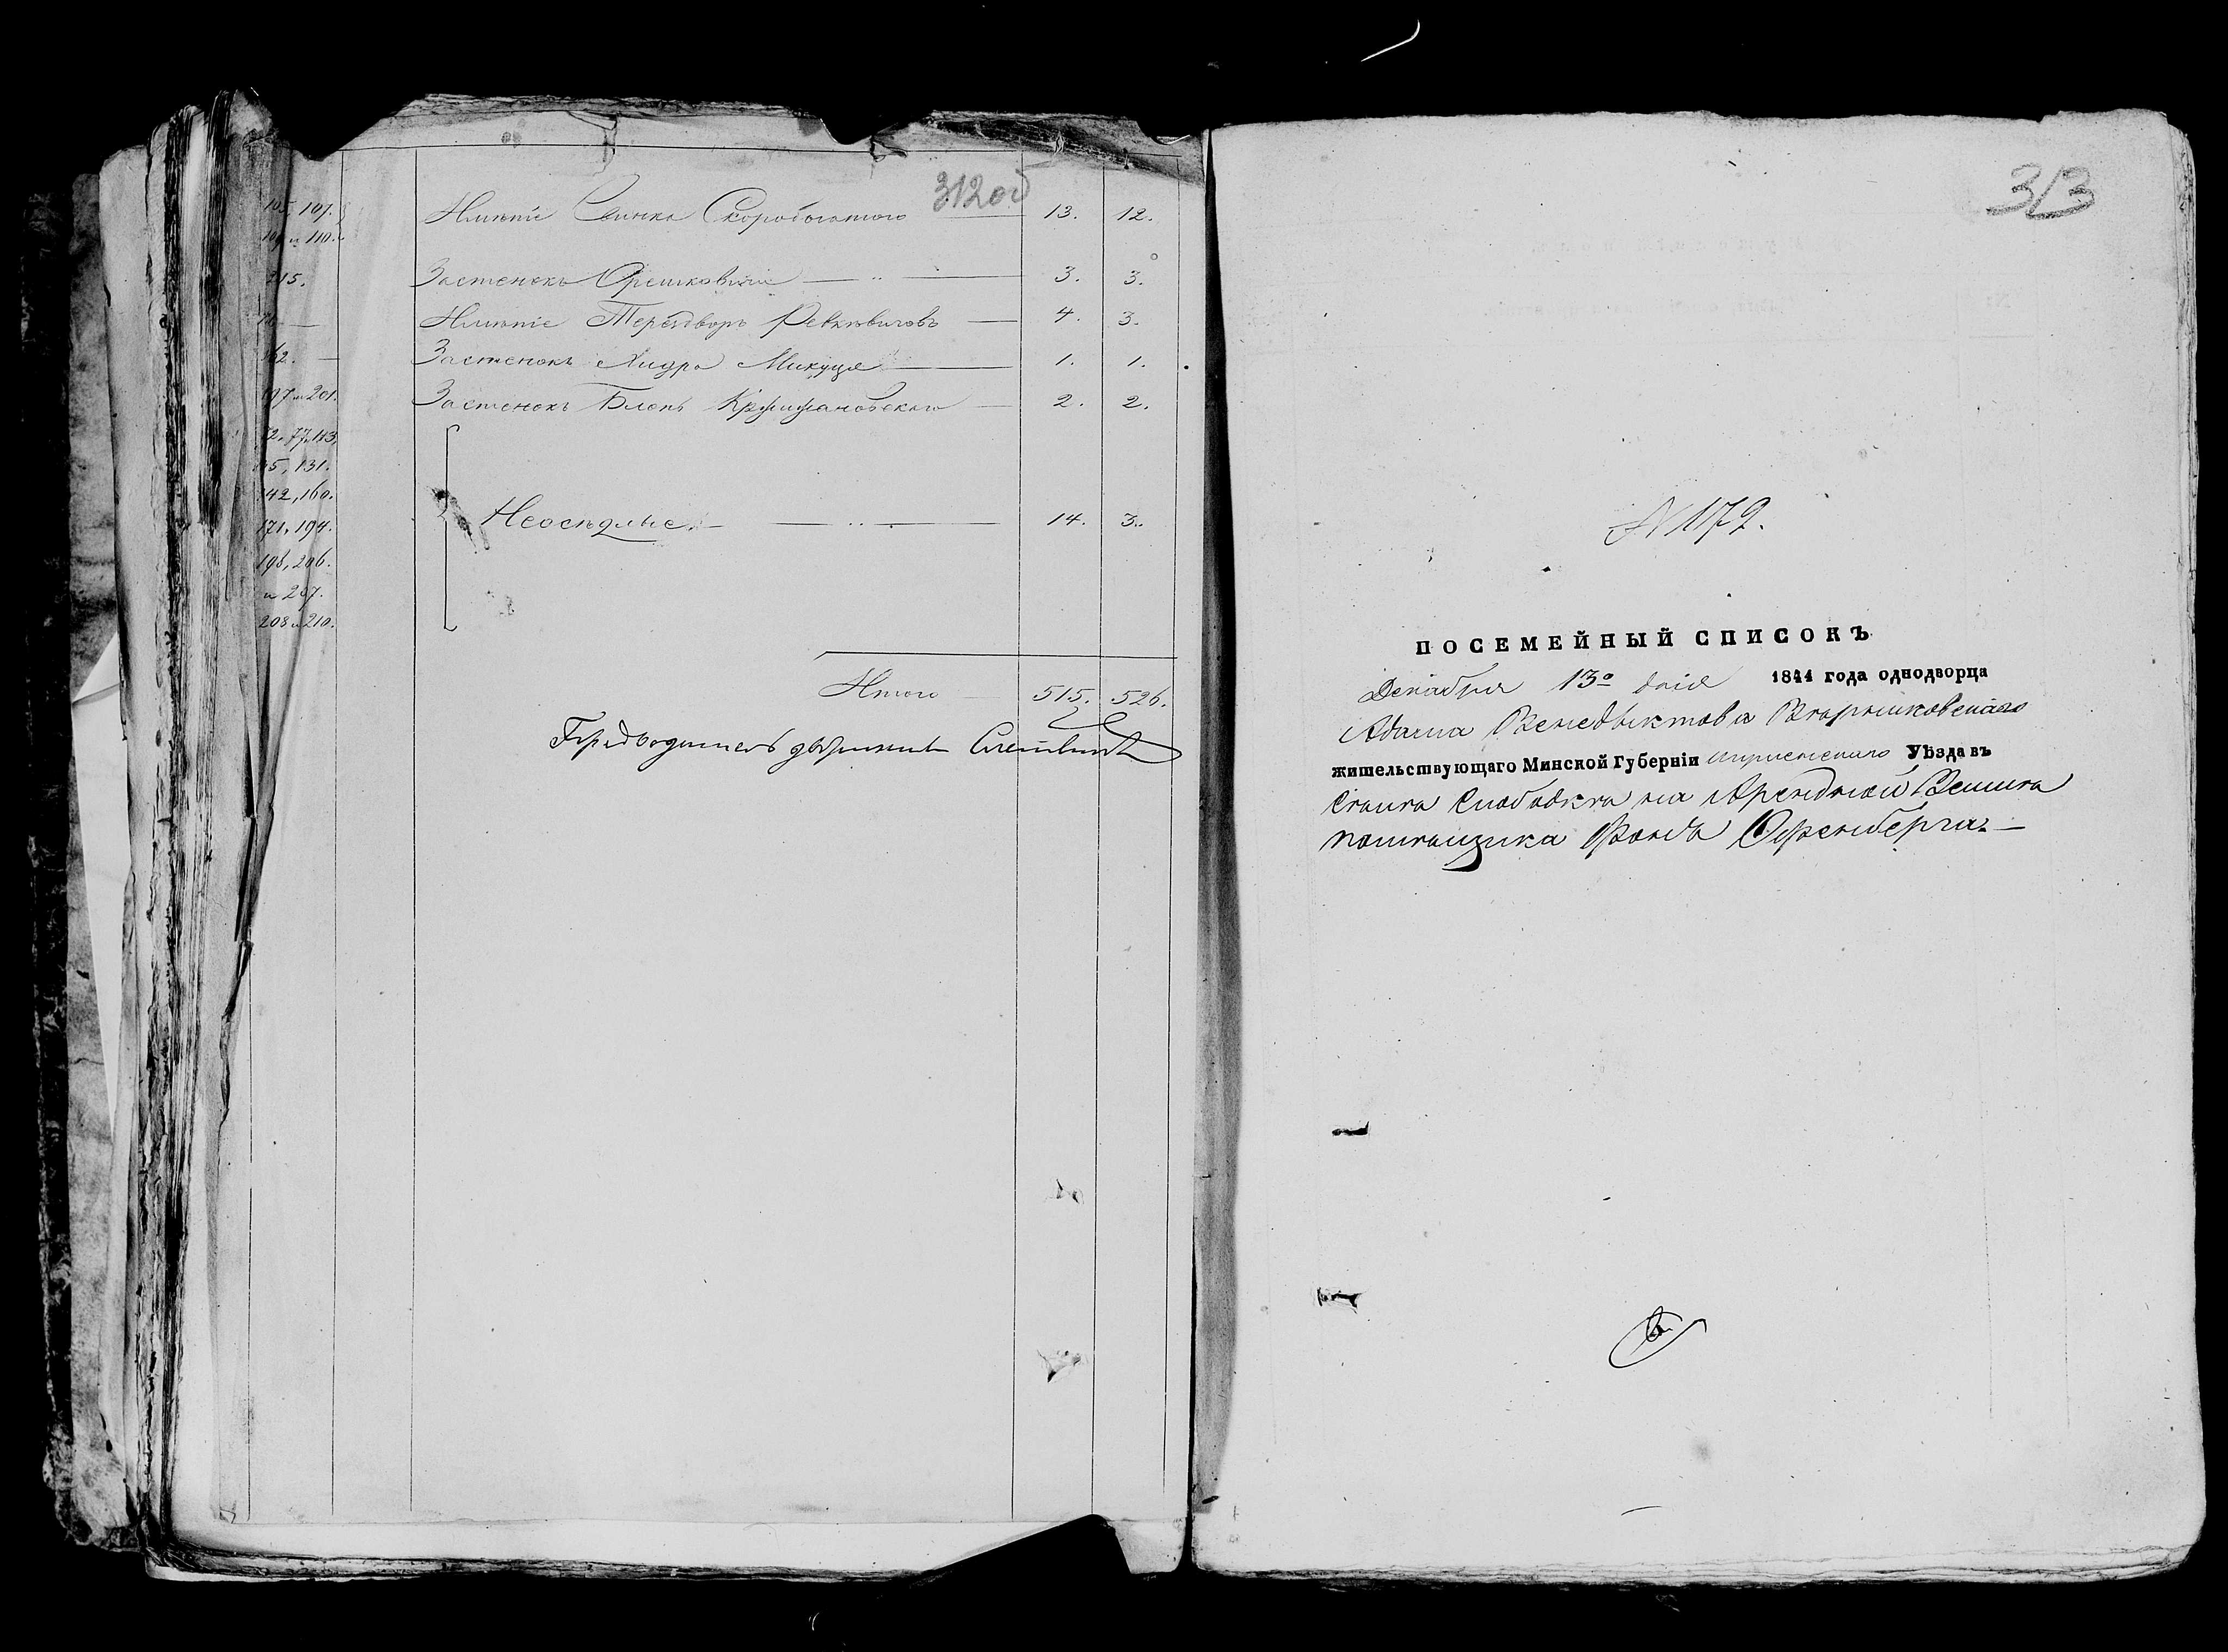 312 об
105, 107.
109 и 110.
Имѣніе Свинка Скоробогатого 13. 12.
215. Застенокъ Орешковичи 3. 3.
Имѣніе Терездворъ Ревкѣвичовъ 4. 3.
162. Застенокъ Хидра Микуця 1. 1.
197 и 201. Застенокъ Блонь Кржижановскаго 2. 2.
72, 77, 113,
131.
142, 160.
171, 194. Неоседлые 14. 3.
198, 206.
и 207.
208 и 210.
Итого 515. 526.
Предводитель дворянства
313
N 172.
ПОСЕМЕЙНЫЙ СПИСОКЪ
Декабря 13º дня 1844 года однодворца
Адама Бенедыктова
жительствующаго Минской Губерніи Игуменскаго Уѣзда въ
Слободка на Арендной Земли
помещика Фонъ Оффенберга.